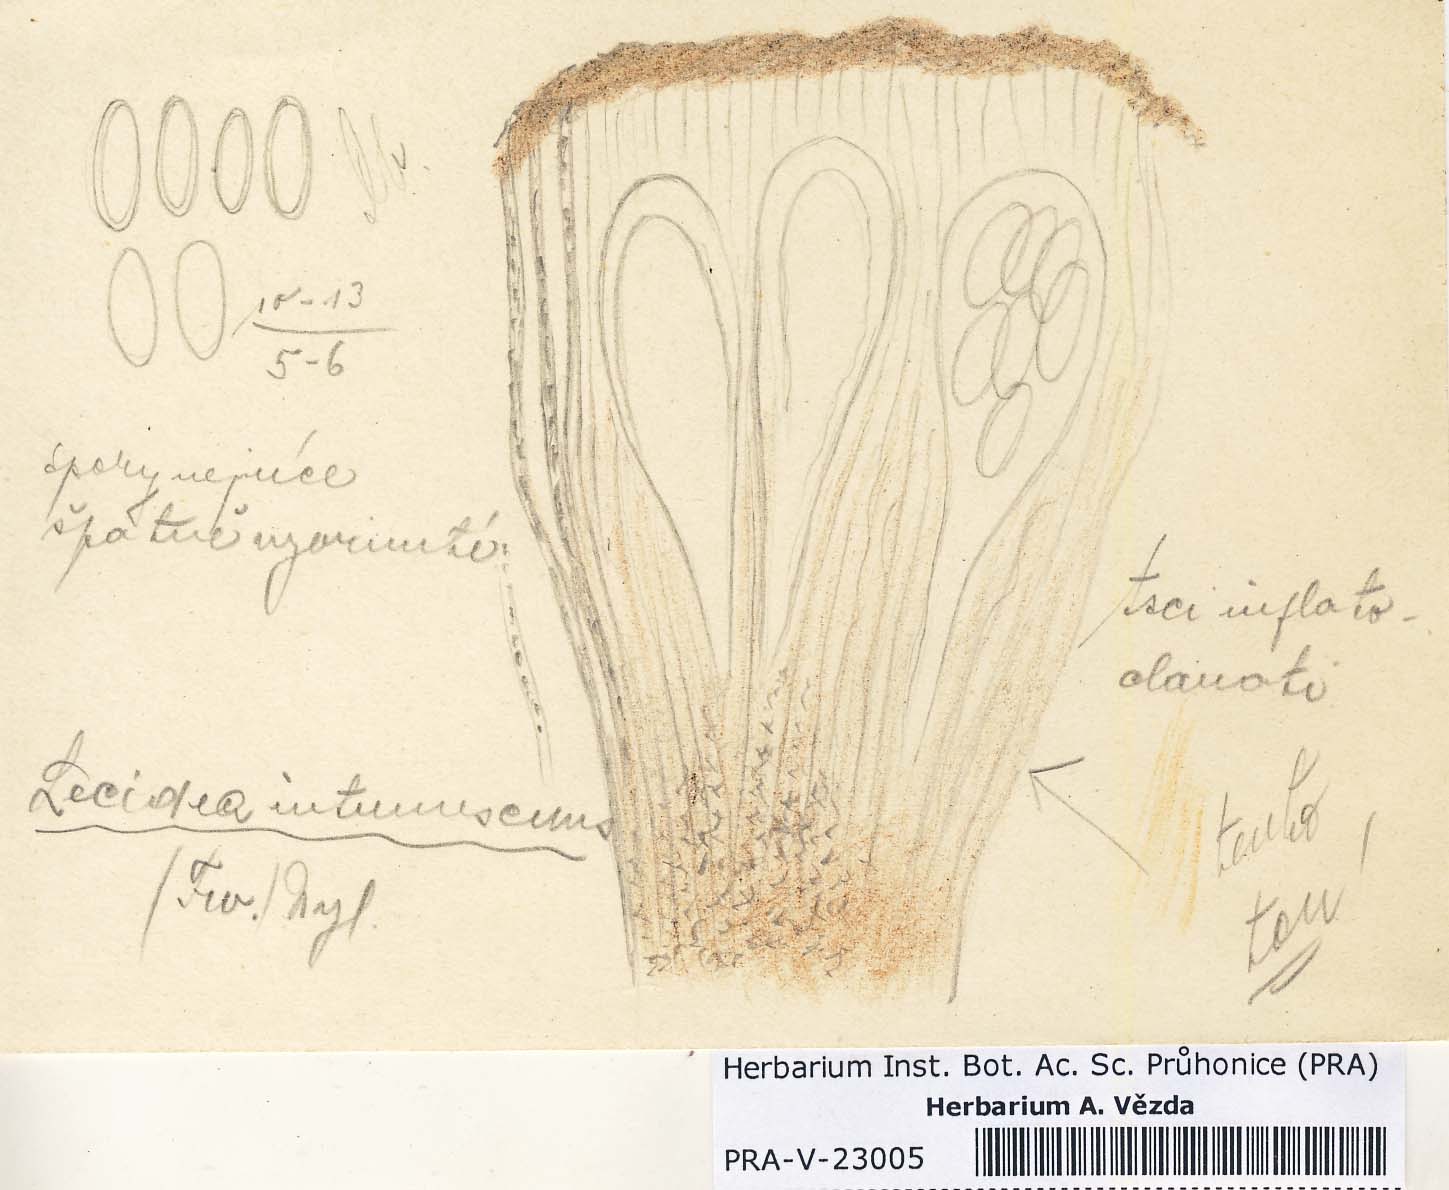 10-13
5-6
spory nejvíce
špatně vyvinuté
Asci inflato-
clavati
Lecidea intumescens
(Flw.) Nyl.
tento
ton!
Herbarium Inst. Bot. Ac. Sc. Průhonice (PRA)
Herbarium A. Vězda
PRA-V-23005